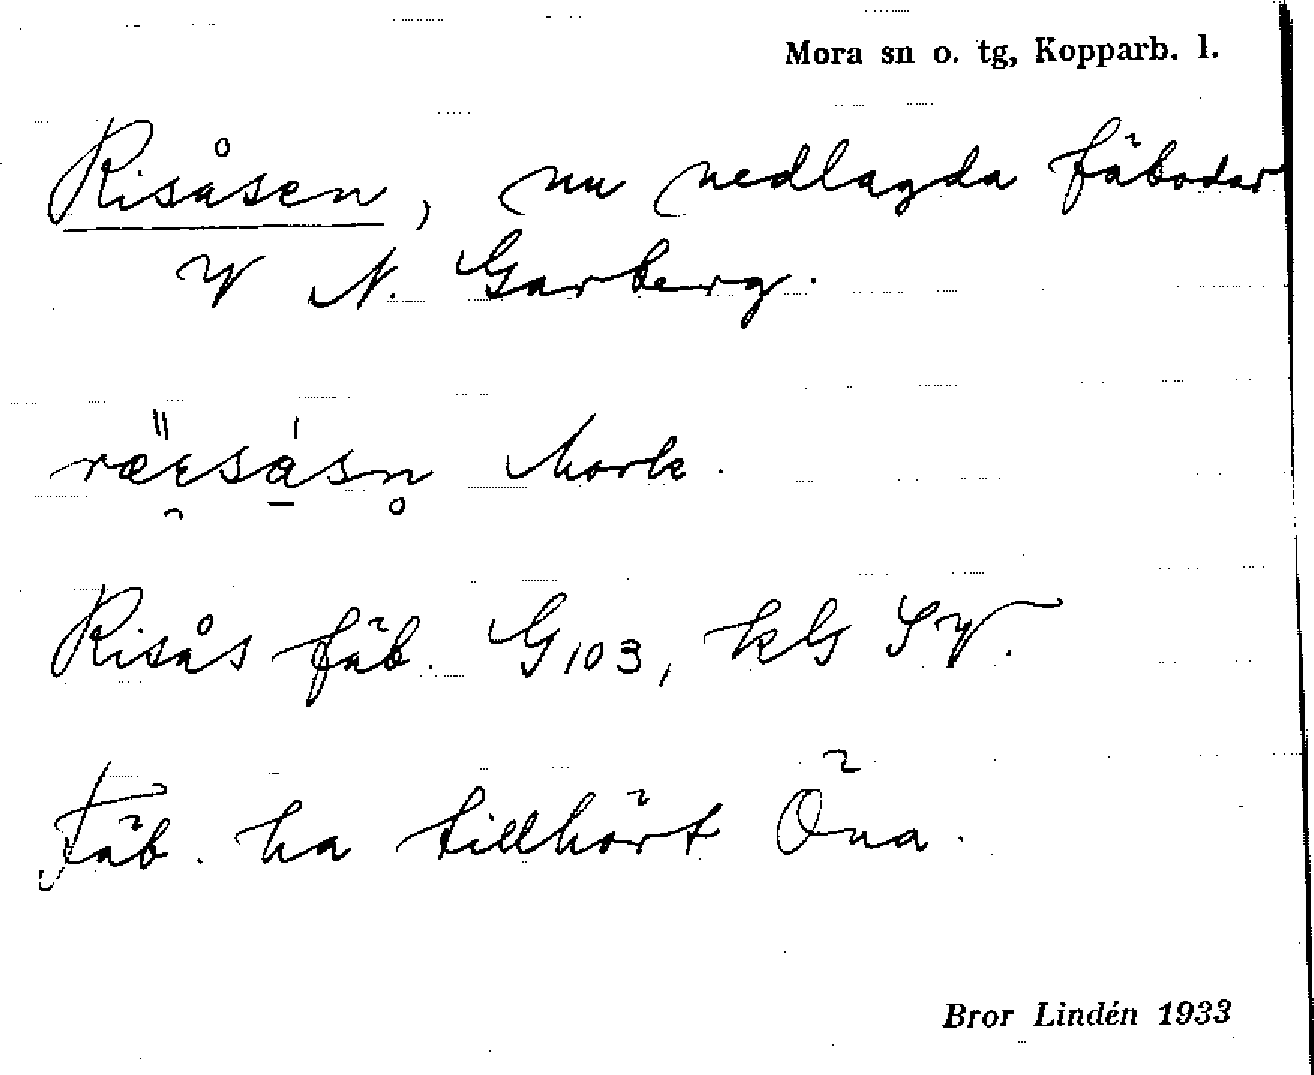 Mora sn o. tg, Kopparb. l.
Risåsen, nu nedlagda fäbodar
V N. Garberg.
Mork.
Risås fäb. G103, kbl SV.
Fäb. ha tillhört Öna.
Bror Lindén 1933